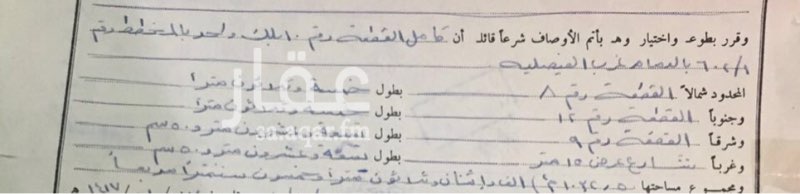 وقرر بطوعه واختيار وهـ بأتم الأوصاف شرعاً قائلا أن كامل القطعة رقم ١٠ بلك واحد بالمخطط رقم
٦٠٢/٩ غرب الفيصلية
المحدود شمالاً القطعة رقم ٨ بطول خمسة وثلاثون متراً
وجنوباً القطعة رقم ١٢ بطول خمسة وثلاثون متراً
وشرقاً القطعة رقم ٩ بطول تسعة وعشرون متر و٥٠ سم
وغرباً شارع عرض ١٥ متر بطول تسعة وعشرون متر و٥٠ سم
ومجموع مساحتها ألف واثنان وثلاثون متراً وخمسون سنتمتراً مربعاً
عقار
sa.aqar.fm